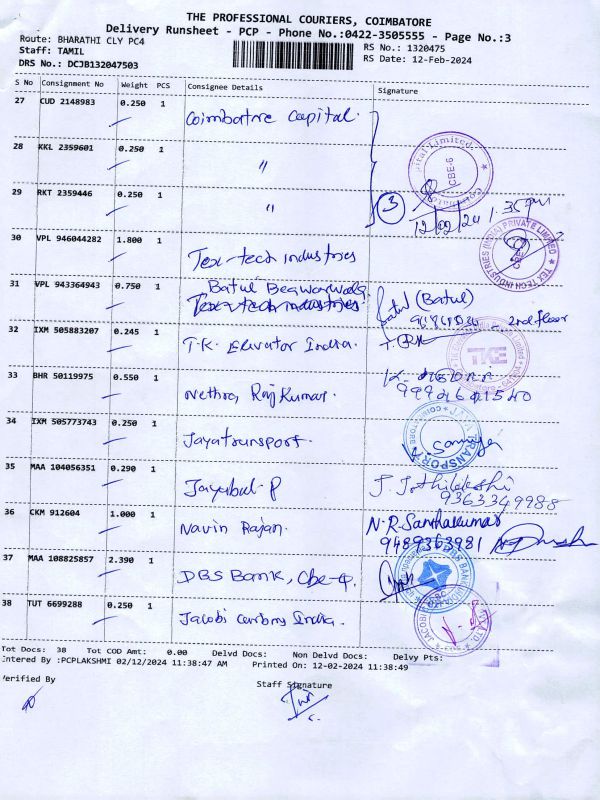 THE PROFESSIONAL COURIERS, COIMBATORE
Delivery Runsheet - PCP - Phone No.:0422-3505555 - Page No.:3
Route: BHARATHI CLY PC4
RS No.: 1320475
Staff: TAMIL
RS Date: 12-Feb-2024
DRS No.: DCJB132047503
S No Consignment No Weight PCS Consignee Details Signature
27 CUD 2148983 0.250 1 Coimbatore Capital.
28 KKL 2359601 0.250 1 "
29 RKT 2359446 0.250 1 " 3
12/02/24 1.35 pm
30 VPL 946044282 1.800 1 Tex-tech industries
TEX TECH INDUSTRIES (INDIA) PRIVATE LIMITED
31 VPL 943364943 0.750 1 Batul (Batul)
Tex-tech industries 2nd floor
32 IXM 505883207 0.245 1 T.K. Elevator India.
TKE
33 BHR 50119975 0.550 1 Nethra, Raj Kumar.
34 IXM 505773743 0.250 1 Jayatransport.
35 MAA 104056351 0.290 1 Jayabal-P J. Jothilakshi
9363349988
36 CKM 912604 1.000 1 Navin Rajan. N.R.Santhakumar
9489363981
37 MAA 108825857 2.390 1 DBS Bank, Cbe-9.
38 TUT 6699288 0.250 1 Jacobi carbons India.
Tot Docs: 38 Tot COD Amt: 0.00 Delvd Docs: Non Delvd Docs: Delvy Pts:
Entered By :PCPLAKSHMI 02/12/2024 11:38:47 AM Printed On: 12-02-2024 11:38:49
Verified By
Staff Signature